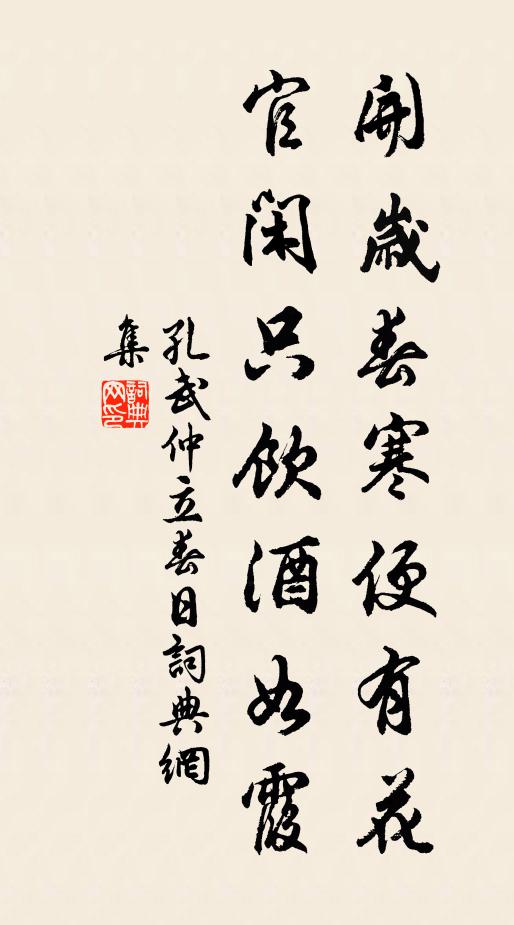 開歲春寒便有花
官閑只飲酒如霞
孔武仲立春日詞典網
集
詞典
網印